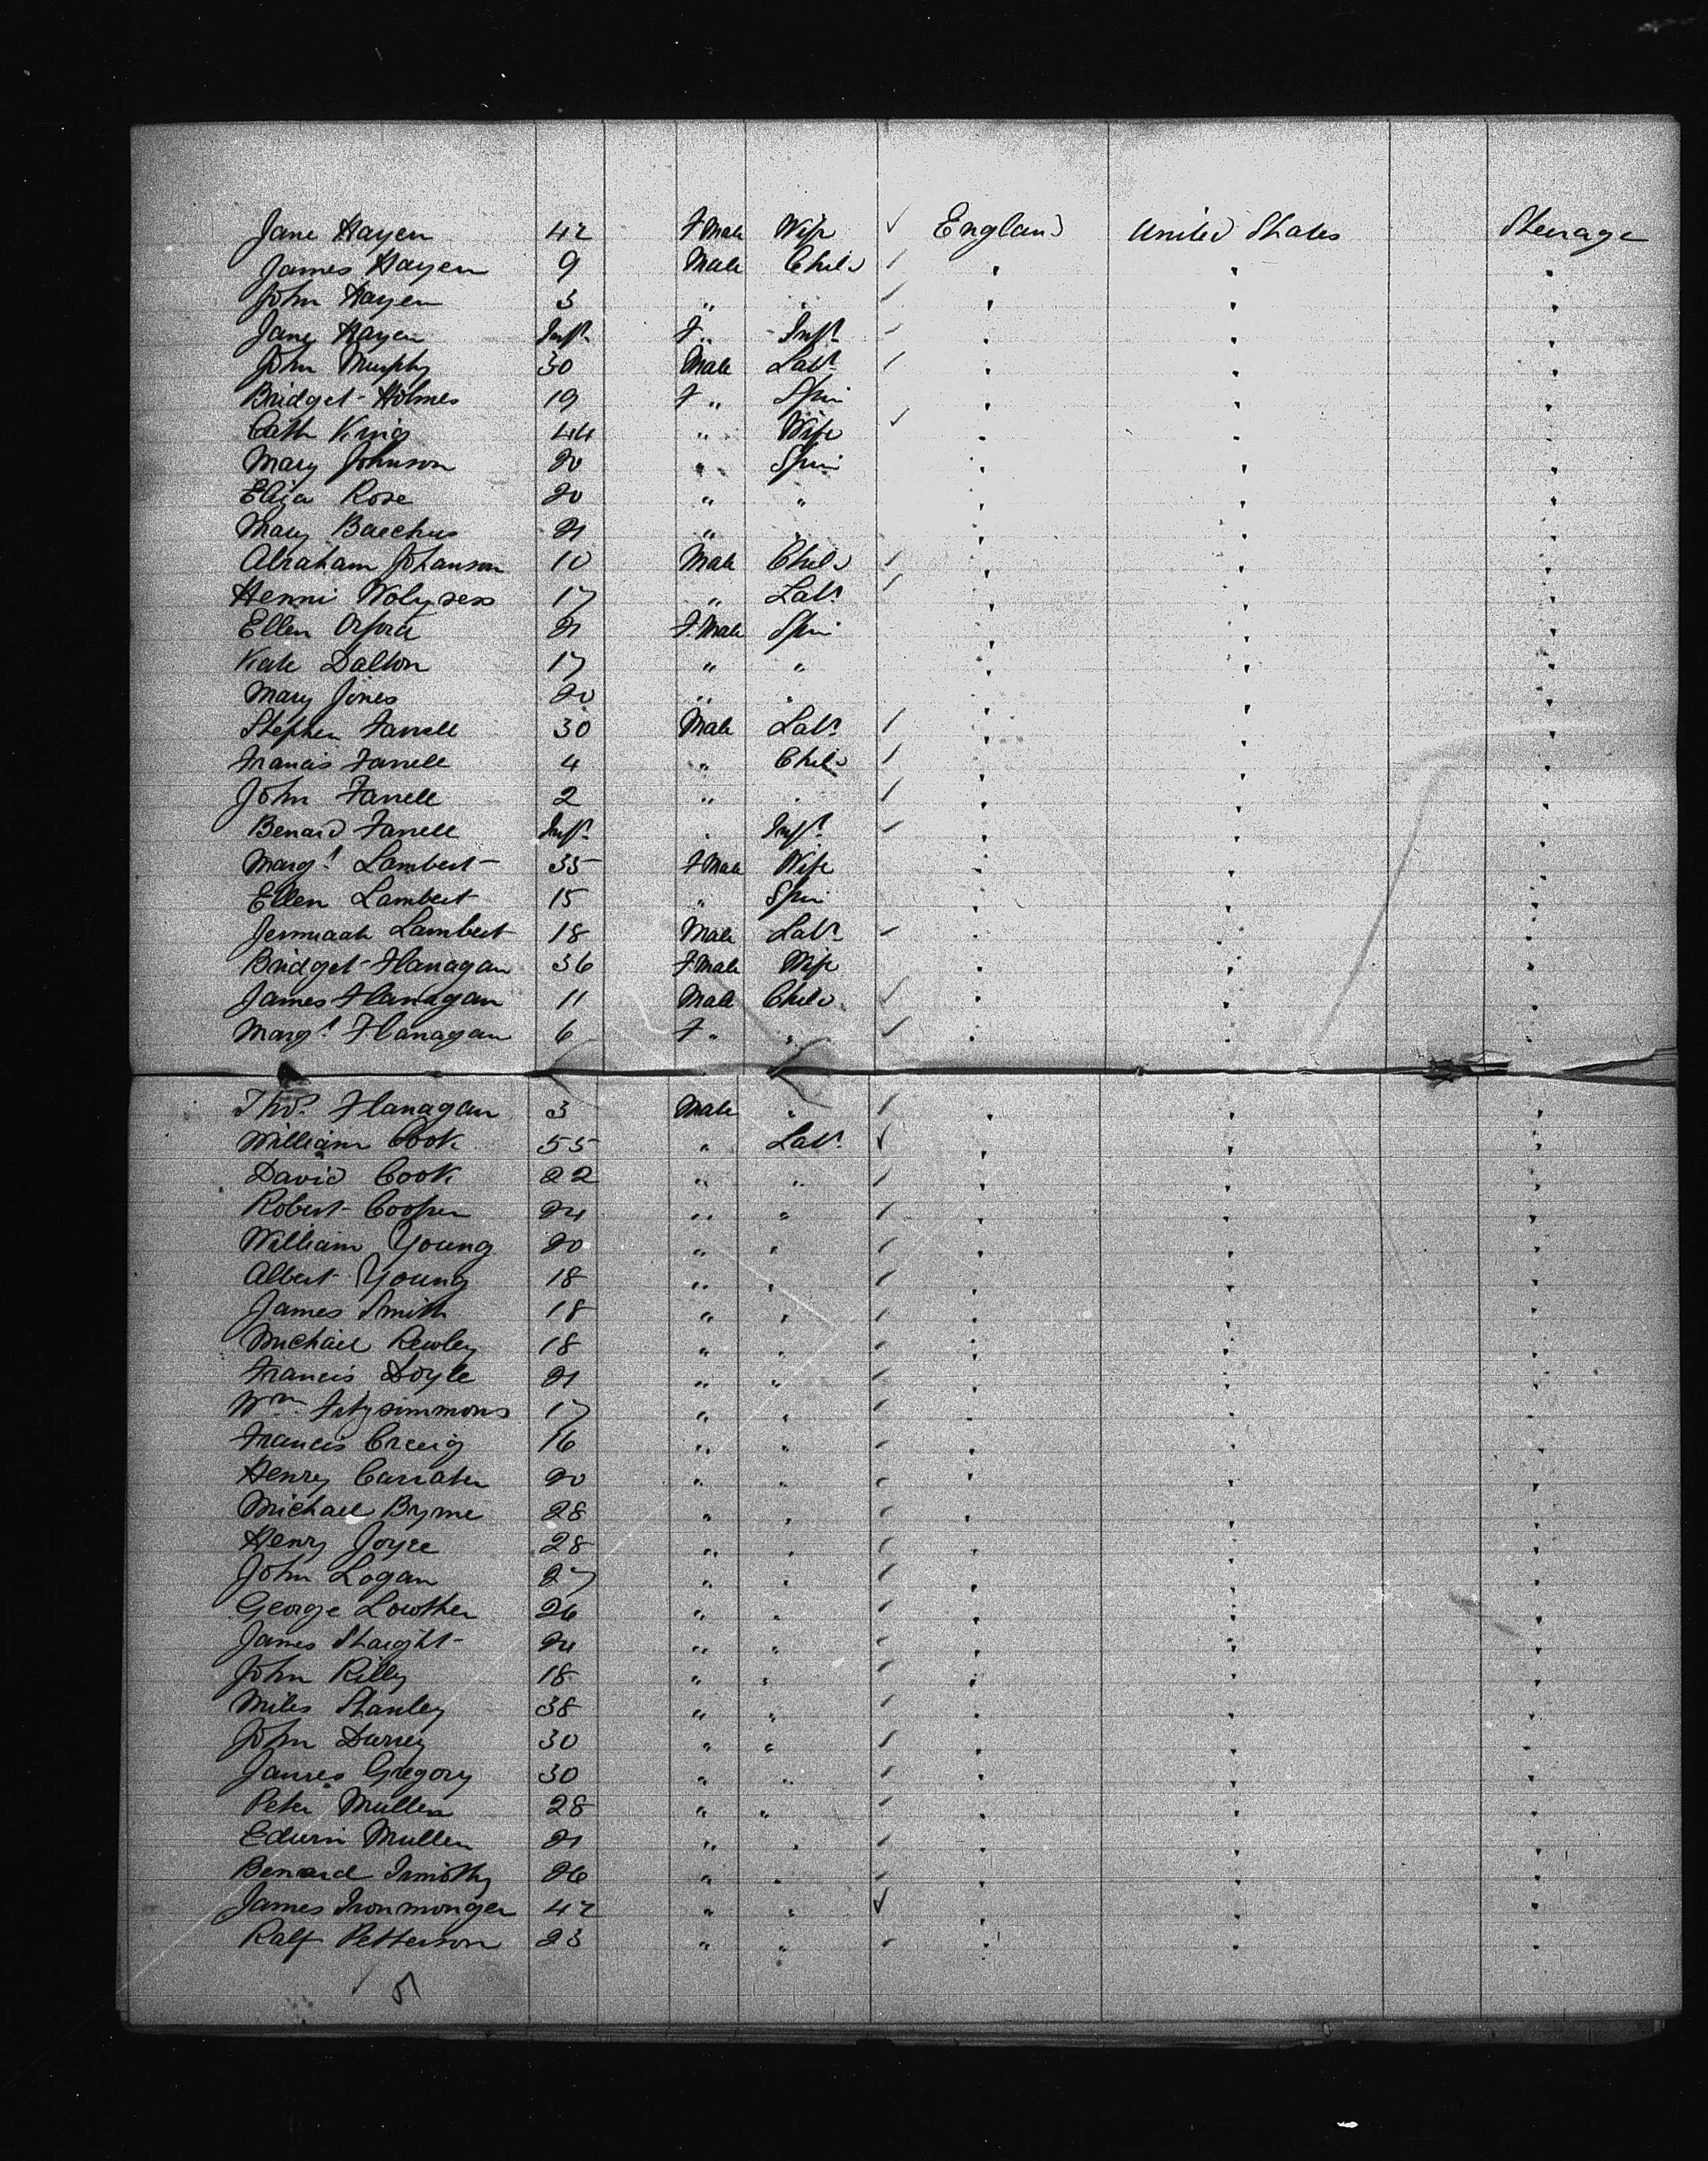 Jane Hayen 42 F Male Wife ✓ England United States Steerage
James Hayen 9 Male Child ✓ " " "
John Hayen 3 " " ✓ " " "
Jane Hayen Inft. F " Inft. ✓ " " "
John Murphy 30 Male Labr. ✓ " " "
Bridget Holmes 19 F " Spin " " "
Cath King 44 " Wife ✓ " " "
Mary Johnson 20 " Spin " " "
Eliza Rose 20 " " " " "
Mary Bacchus 21 " " " " "
Abraham Johanson 10 Male Child ✓ " " "
Henni 17 " Labr. ✓ " " "
Ellen 21 F. Male Spin " " "
Kate Dalton 17 " " " " "
Mary Jones 20 " " " " "
Stephen Farrell 30 Male Labr. ✓ " " "
Francis Farrell 4 " Child ✓ " " "
John Farrell 2 " " ✓ " " "
Benard Farrell Inft. " Inft. ✓ " " "
Margt. Lambert 35 F Male Wife " " "
Ellen Lambert 15 " Spin " " "
Jermiaah Lambert 18 Male Labr. ✓ " " "
Bridget Flanagan 36 F. Male Wife " " "
James Flanagan 11 Male Child ✓ " " "
Margt. Flanagan 6 F " " ✓ " " "
Thos. Flanagan 3 Male " ✓ " " "
William Cook 55 " Labr. ✓ " " "
David Cook 22 " " ✓ " " "
Robert Cooper 24 " " ✓ " " "
William Young 20 " " ✓ " " "
Albert Young 18 " " ✓ " " "
James Smith 18 " " ✓ " " "
Michael Rewley 18 " " ✓ " " "
Francis Doyle 21 " " ✓ " " "
Wm. Fitzsimmons 17 " " ✓ " " "
Francis 16 " " ✓ " " "
Henry 20 " " ✓ " " "
Michael Byrne 28 " " ✓ " " "
Henry Joyce 28 " " ✓ " " "
John Logan 27 " " ✓ " " "
George Lowther 26 " " ✓ " " "
James Staight 24 " " ✓ " " "
John Rilly 18 " " ✓ " " "
Miles Stanley 38 " " ✓ " " "
John Durrey 30 " " ✓ " " "
James Gregory 30 " " ✓ " " "
Peter Mullen 28 " " ✓ " " "
Edwin Mullen 21 " " ✓ " " "
Benard 26 " " ✓ " " "
James Ironmonger 42 " " ✓ " " "
Ralf Petterson 23 " " ✓ " " "